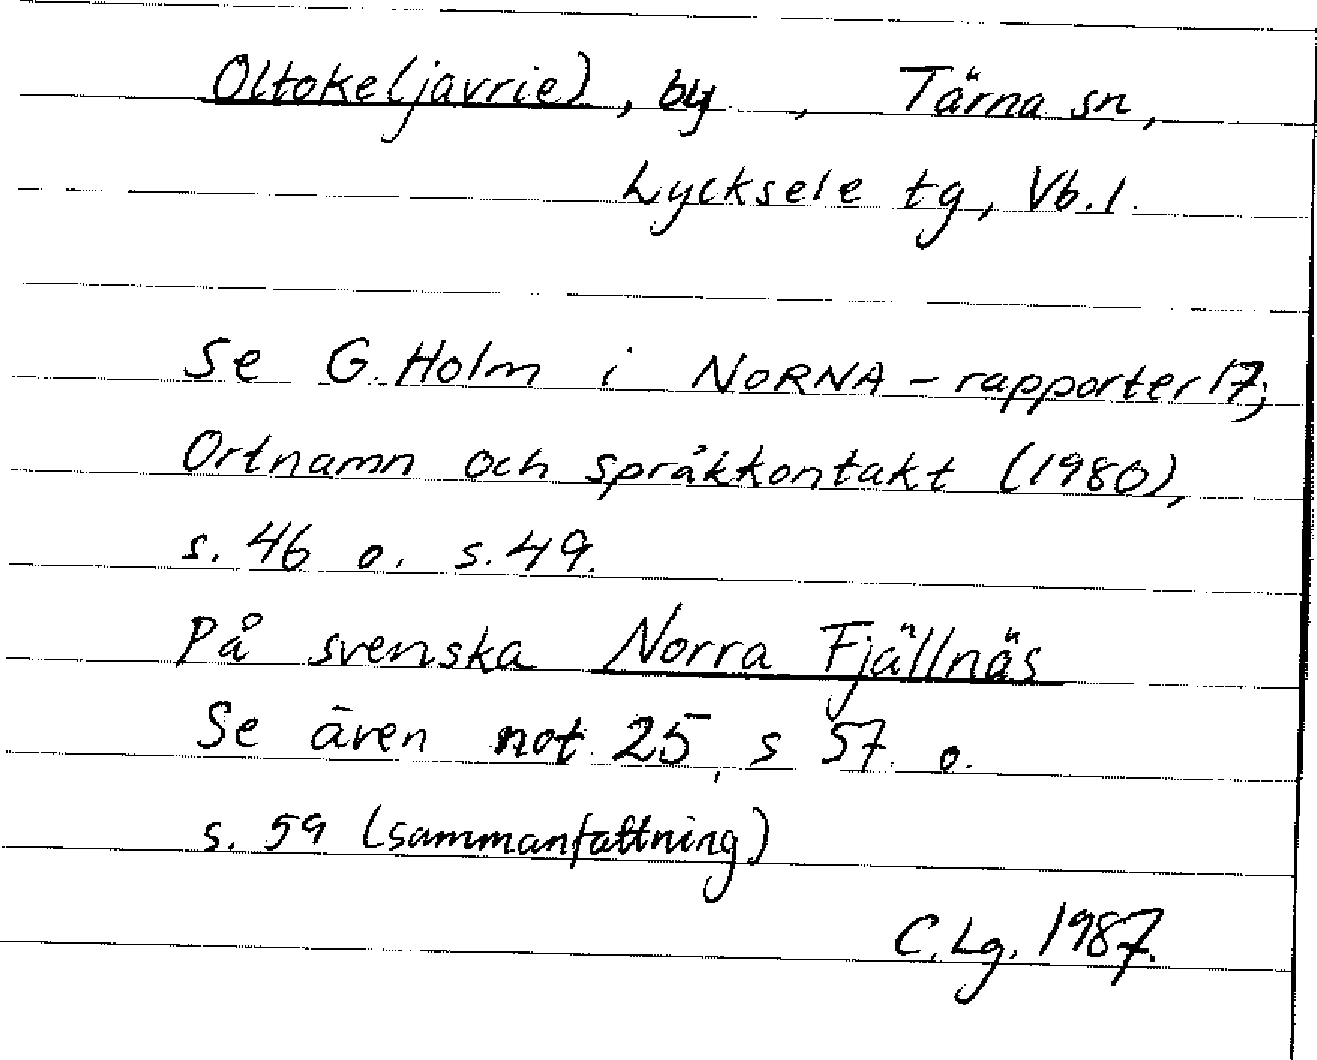 Oltoke(javrie), by, Tärna sn,
Lycksele tg, Vb. l.
Se G. Holm i NORNA-rapporter 17;
Ortnamn och språkkontakt (1980),
s. 46 o. s. 49.
På svenska Norra Fjällnäs
Se även not 25, s 57. o.
s. 59 (sammanfattning)
C. Lg. 1987.